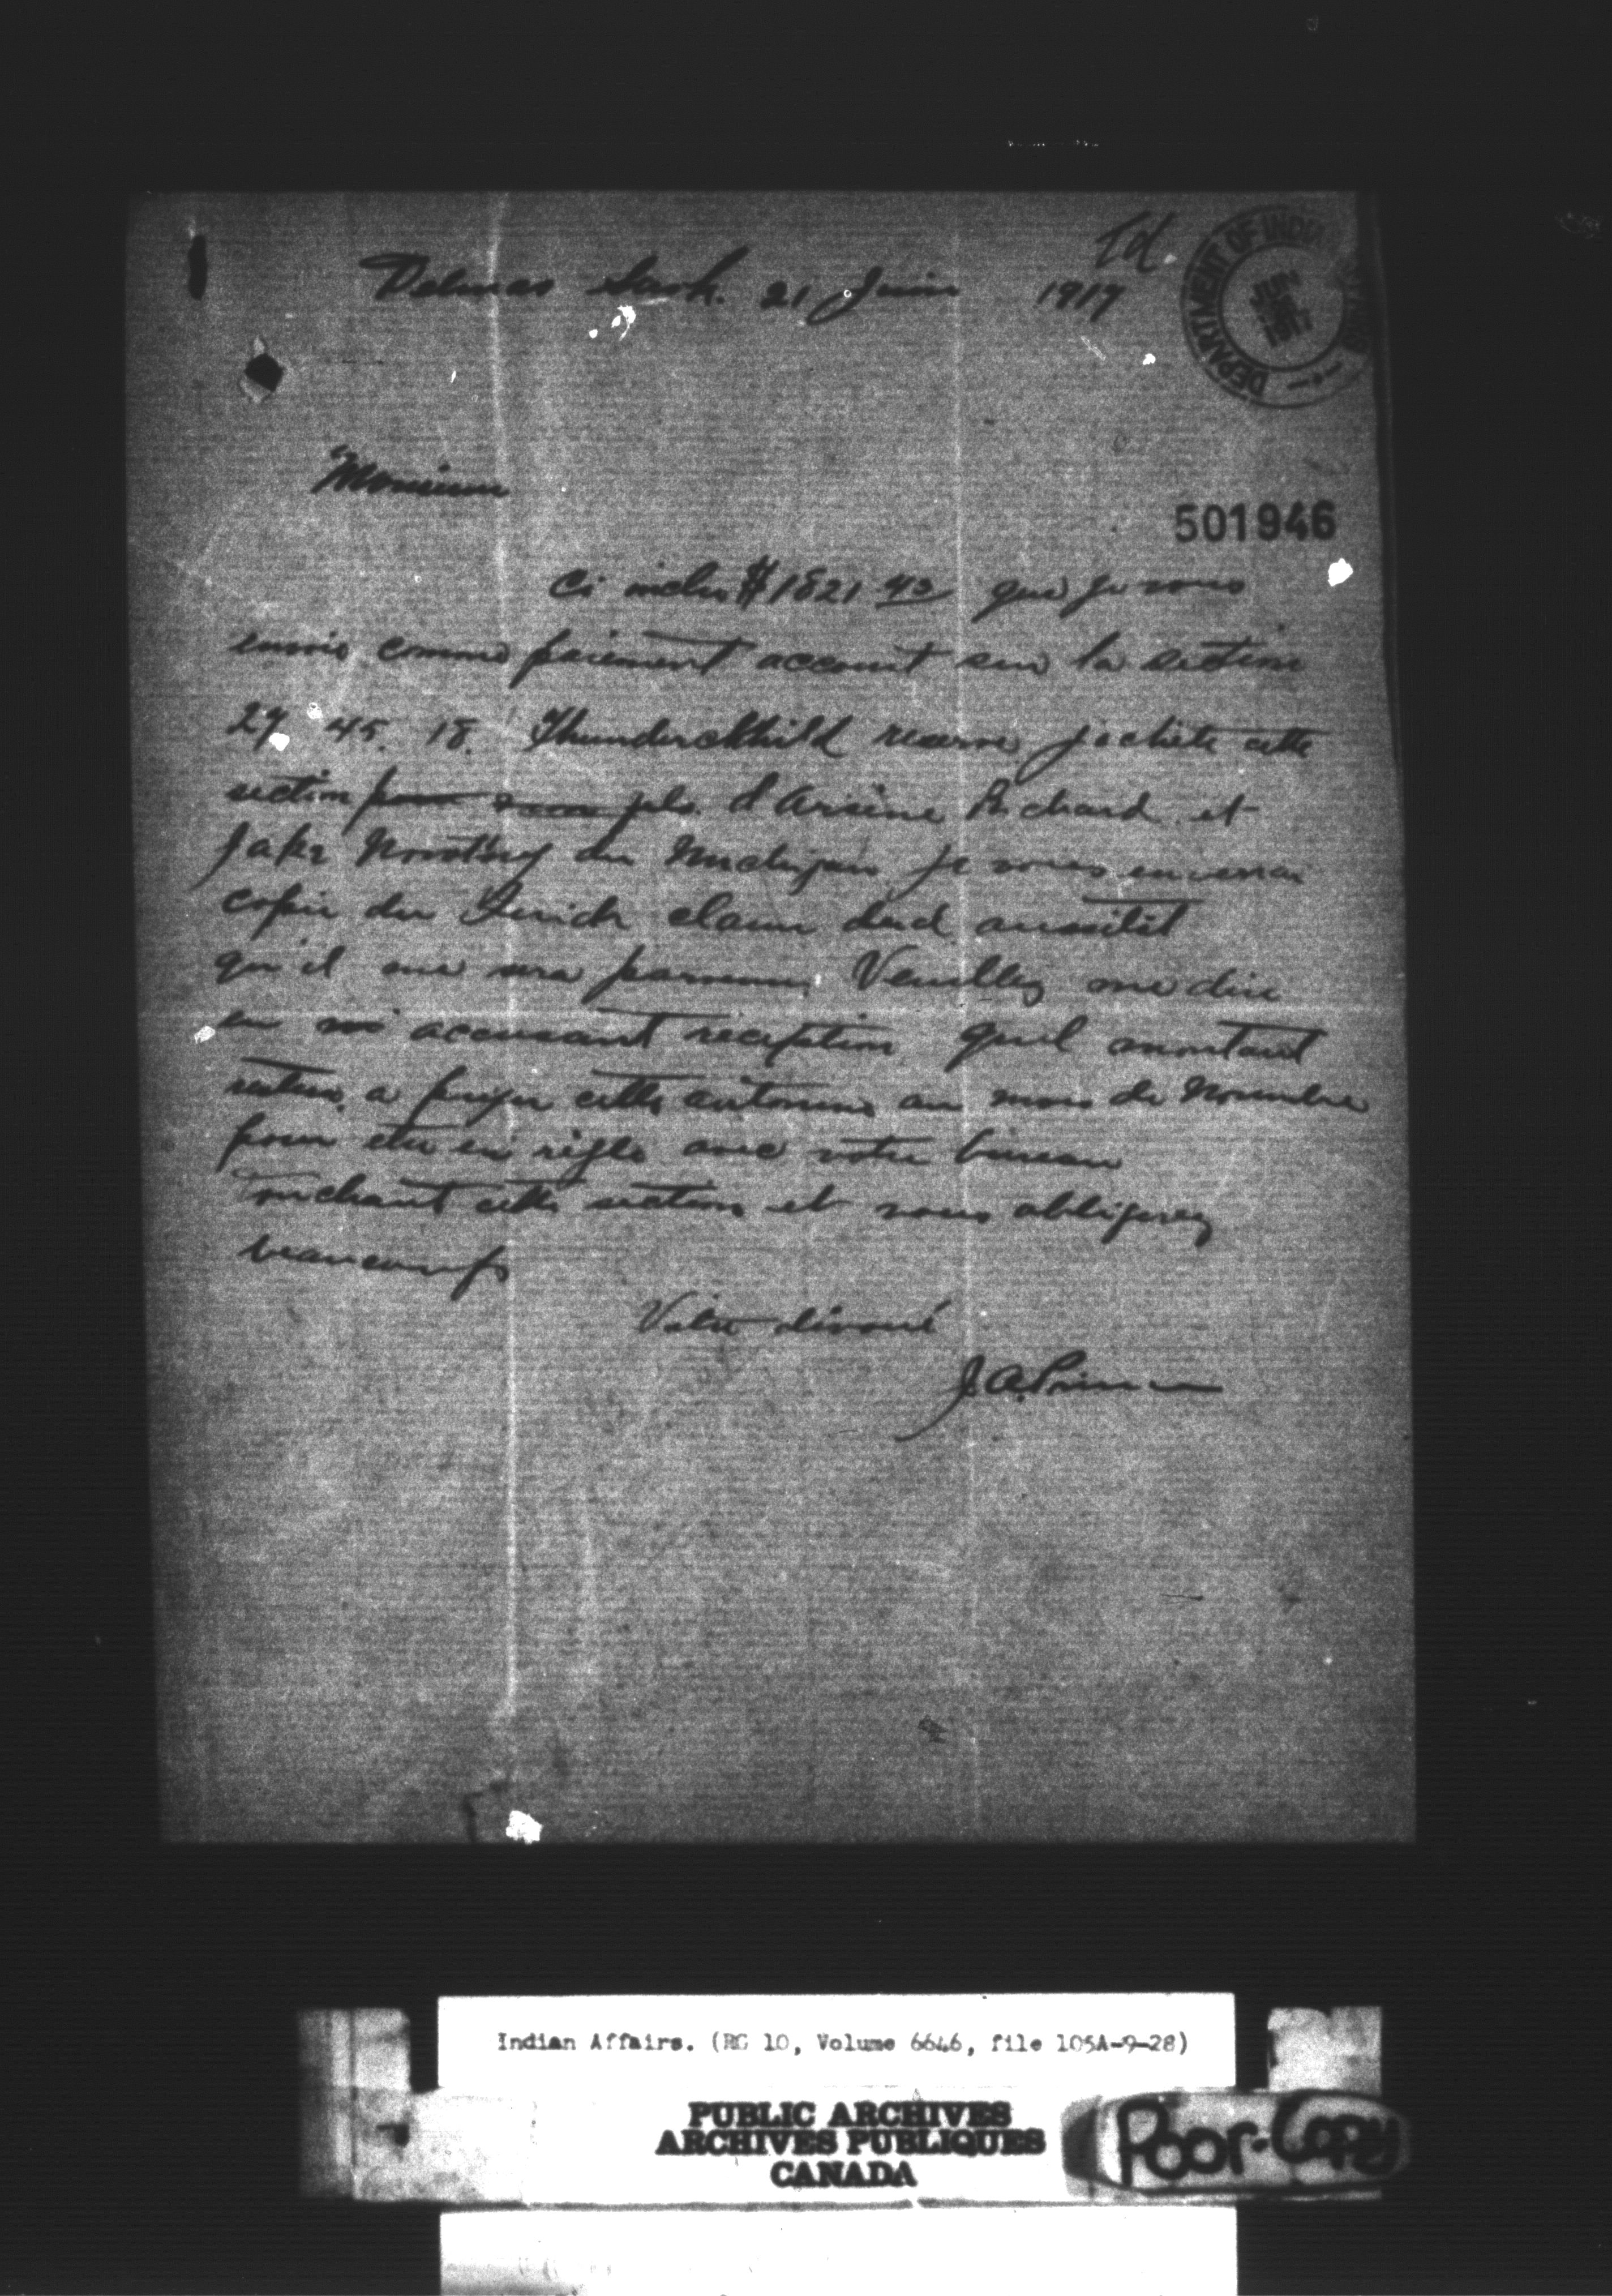 Td.
Delmas Sask. 21 Juin 1917
DEPARTMENT OF INDIAN AFFAIRS
JUN 1917
Monsieur
501946
Ci inclus $1821 43 que je vous
envoie comme paiement accompt sur la section
27 45. 18. Thunderchhild reserve j'achète cette
section pour d'Arsène Richard et
Jake du Michigan je vous enverrai
copie du Quick claim deed aussitôt
qu'il me sera parvenu. Veuillez me dire
en m'accusant réception quel montant
restera a payer cette automne au mois de Novembre
pour être en règle avec votre bureau
touchant cette section et vous obligerez
beaucoup
Votre dévoué
J. A. Prince
Indian Affairs. (RG 10, Volume 6646, file 105A-9-28)
PUBLIC ARCHIVES
ARCHIVES PUBLIQUES
CANADA
Poor-Copy